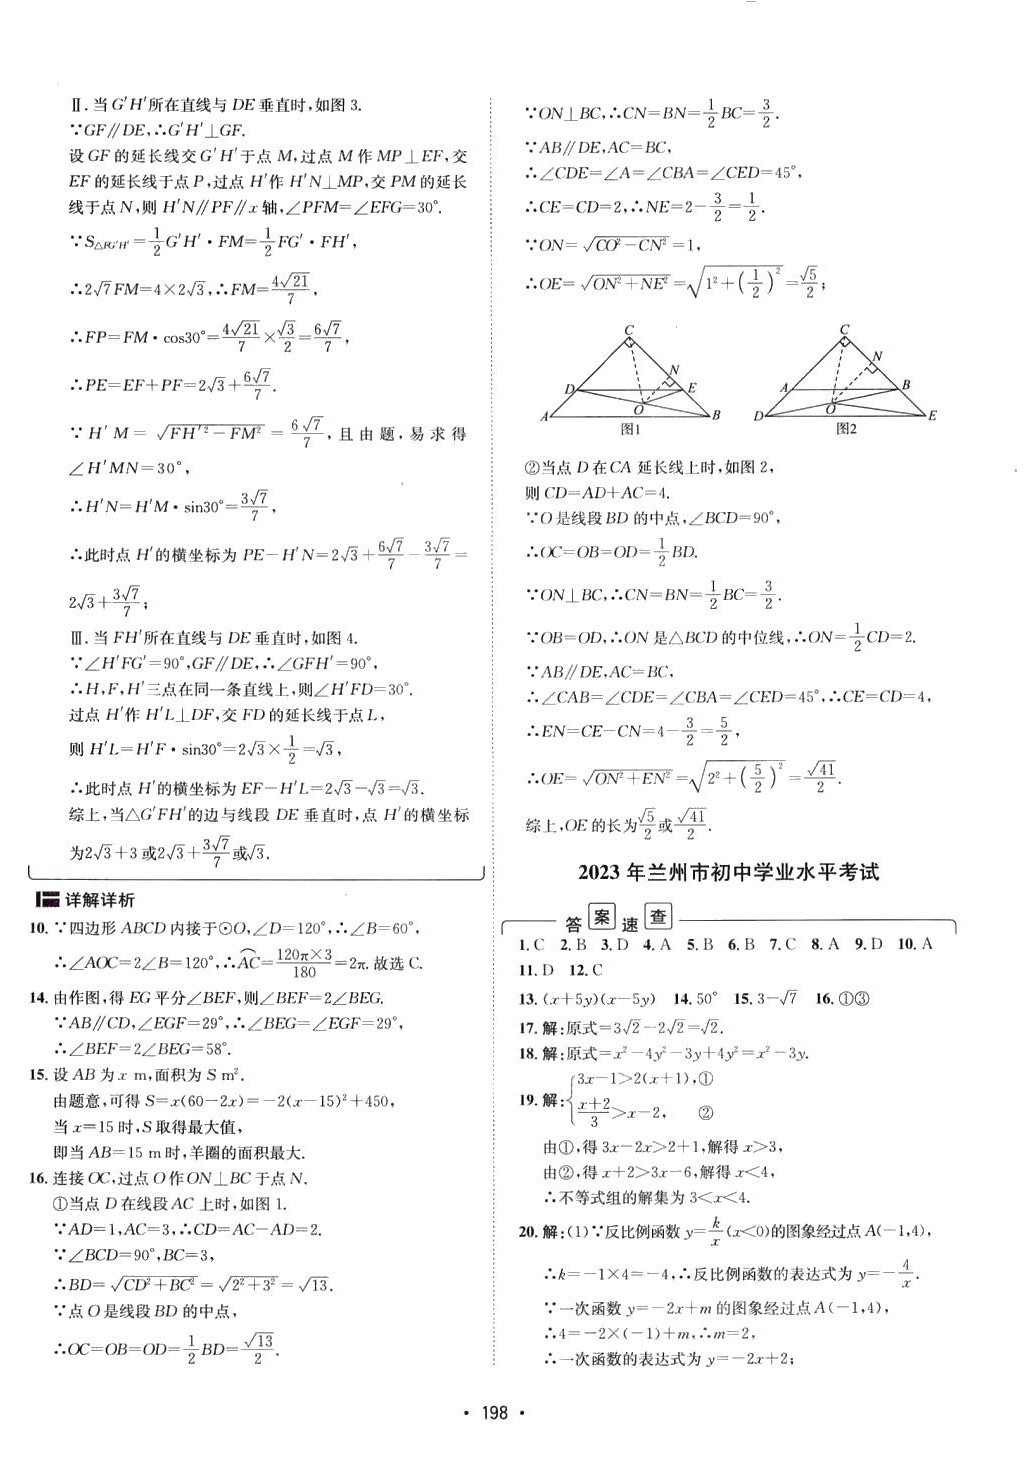 Ⅱ. 当 G′H′所在直线与 DE 垂直时,如图 3.
∵GF∥DE,∴G′H′⊥GF.
设 GF 的延长线交 G′H′于点 M,过点 M 作 MP⊥EF,交
EF 的延长线于点 P,过点 H′作 H′N⊥MP,交 PM 的延长
线于点 N,则 H′N∥PF∥x 轴,∠PFM=∠EFG=30°.
∵S△FG′H′=1/2 G′H′·FM=1/2 FG′·FH′,
∴2√7 FM=4×2√3,∴FM=4√21/7,
∴FP=FM·cos30°=4√21/7×√3/2=6√7/7,
∴PE=EF+PF=2√3+6√7/7.
∵H′M=√(FH′²-FM²)=6√7/7,且由题,易求得
∠H′MN=30°,
∴H′N=H′M·sin30°=3√7/7,
∴此时点 H′的横坐标为 PE-H′N=2√3+6√7/7-3√7/7=
2√3+3√7/7;
Ⅲ. 当 FH′所在直线与 DE 垂直时,如图 4.
∵∠H′FG′=90°,GF∥DE,∴∠GFH′=90°,
∴H,F,H′三点在同一条直线上,则∠H′FD=30°.
过点 H′作 H′L⊥DF,交 FD 的延长线于点 L,
则 H′L=H′F·sin30°=2√3×1/2=√3,
∴此时点 H′的横坐标为 EF-H′L=2√3-√3=√3.
综上,当△G′FH′的边与线段 DE 垂直时,点 H′的横坐标
为2√3+3或2√3+3√7/7或√3.
详解详析
10. ∵四边形 ABCD 内接于⊙O,∠D=120°,∴∠B=60°,
∴∠AOC=2∠B=120°,∴A͡C=120π×3/180=2π. 故选 C.
14. 由作图,得 EG 平分∠BEF,则∠BEF=2∠BEG.
∵AB∥CD,∠EGF=29°,∴∠BEG=∠EGF=29°,
∴∠BEF=2∠BEG=58°.
15. 设 AB 为 x m,面积为 S m².
由题意,可得 S=x(60-2x)=-2(x-15)²+450,
当 x=15 时,S 取得最大值,
即当 AB=15 m 时,羊圈的面积最大.
16. 连接 OC,过点 O 作 ON⊥BC 于点 N.
①当点 D 在线段 AC 上时,如图 1.
∵AD=1,AC=3,∴CD=AC-AD=2.
∵∠BCD=90°,BC=3,
∴BD=√(CD²+BC²)=√(2²+3²)=√13.
∵点 O 是线段 BD 的中点,
∴OC=OB=OD=1/2 BD=√13/2.
∵ON⊥BC,∴CN=BN=1/2 BC=3/2.
∵AB∥DE,AC=BC,
∴∠CDE=∠A=∠CBA=∠CED=45°,
∴CE=CD=2,∴NE=2-3/2=1/2.
∵ON=√(CO²-CN²)=1,
∴OE=√(ON²+NE²)=√(1²+(1/2)²)=√5/2;
C
N
D
E
O
A
B
图1
C
N
A
B
O
D
E
图2
②当点 D 在 CA 延长线上时,如图 2,
则 CD=AD+AC=4.
∵O 是线段 BD 的中点,∠BCD=90°,
∴OC=OB=OD=1/2 BD.
∵ON⊥BC,∴CN=BN=1/2 BC=3/2.
∵OB=OD,∴ON 是△BCD 的中位线,∴ON=1/2 CD=2.
∵AB∥DE,AC=BC,
∴∠CAB=∠CDE=∠CBA=∠CED=45°,∴CE=CD=4,
∴EN=CE-CN=4-3/2=5/2,
∴OE=√(ON²+EN²)=√(2²+(5/2)²)=√41/2.
综上,OE 的长为√5/2或√41/2.
2023 年兰州市初中学业水平考试
答案速查
1. C 2. B 3. D 4. A 5. B 6. B 7. C 8. A 9. D 10. A
11. D 12. C
13. (x+5y)(x-5y) 14. 50° 15. 3-√7 16. ①③
17. 解:原式=3√2-2√2=√2.
18. 解:原式=x²-4y²-3y+4y²=x²-3y.
19. 解:{3x-1>2(x+1),①
(x+2)/3>x-2, ②
由①,得 3x-2x>2+1,解得 x>3,
由②,得 x+2>3x-6,解得 x<4,
∴不等式组的解集为 3<x<4.
20. 解:(1)∵反比例函数 y=k/x(x<0)的图象经过点 A(-1,4),
∴k=-1×4=-4,∴反比例函数的表达式为 y=-4/x.
∵一次函数 y=-2x+m 的图象经过点 A(-1,4),
∴4=-2×(-1)+m,∴m=2,
∴一次函数的表达式为 y=-2x+2;
· 198 ·